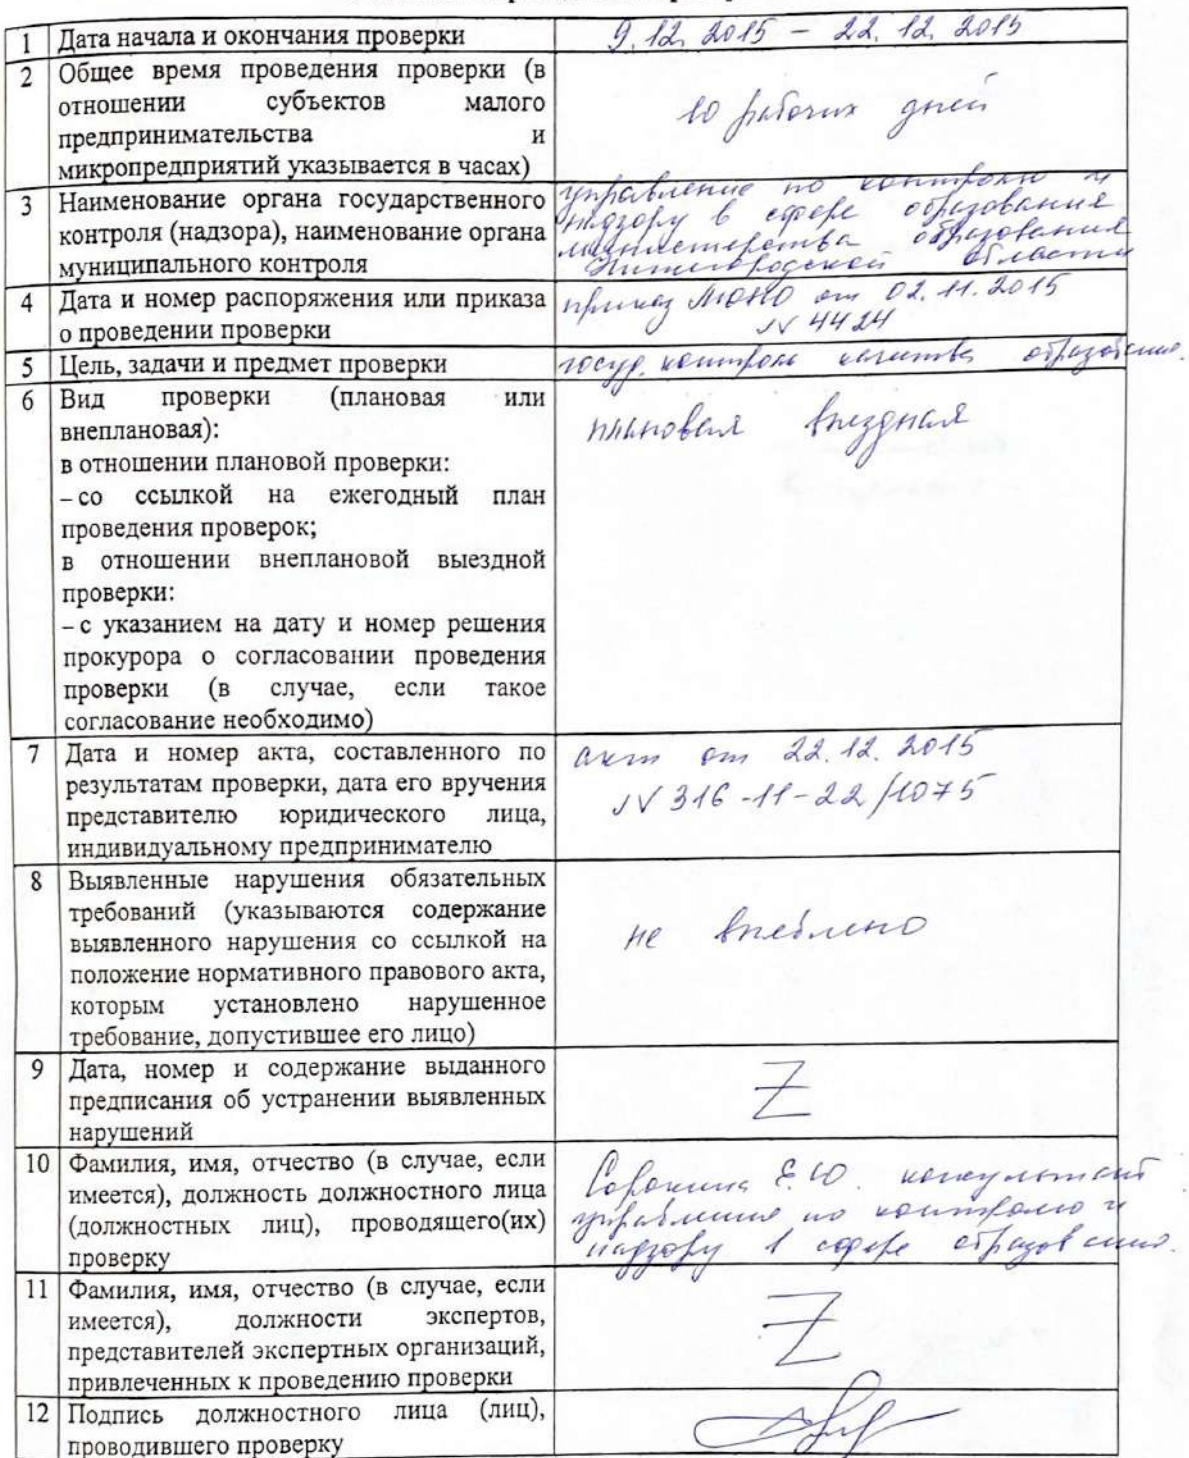 1 Дата начала и окончания проверки 9.12.2015 – 22.12.2015
2 Общее время проведения проверки (в
отношении субъектов малого
предпринимательства и
микропредприятий указывается в часах)
10 рабочих дней
3 Наименование органа государственного
контроля (надзора), наименование органа
муниципального контроля
управление по контролю и
надзору в сфере образования
министерства образования
Нижегородской области
4 Дата и номер распоряжения или приказа
о проведении проверки
приказ МОНО от 02.11.2015
№ 4424
5 Цель, задачи и предмет проверки госуд. контроль качества образования.
6 Вид проверки (плановая или
внеплановая):
в отношении плановой проверки:
– со ссылкой на ежегодный план
проведения проверок;
в отношении внеплановой выездной
проверки:
– с указанием на дату и номер решения
прокурора о согласовании проведения
проверки (в случае, если такое
согласование необходимо)
плановая выездная
7 Дата и номер акта, составленного по
результатам проверки, дата его вручения
представителю юридического лица,
индивидуальному предпринимателю
акт от 22.12.2015
№ 316-11-22/1075
8 Выявленные нарушения обязательных
требований (указываются содержание
выявленного нарушения со ссылкой на
положение нормативного правового акта,
которым установлено нарушенное
требование, допустившее его лицо)
не выявлено
9 Дата, номер и содержание выданного
предписания об устранении выявленных
нарушений
10 Фамилия, имя, отчество (в случае, если
имеется), должность должностного лица
(должностных лиц), проводящего(их)
проверку
Сорокина Е.Ю. консультант
управления по контролю и
надзору в сфере образования.
11 Фамилия, имя, отчество (в случае, если
имеется), должности экспертов,
представителей экспертных организаций,
привлеченных к проведению проверки
12 Подпись должностного лица (лиц),
проводившего проверку